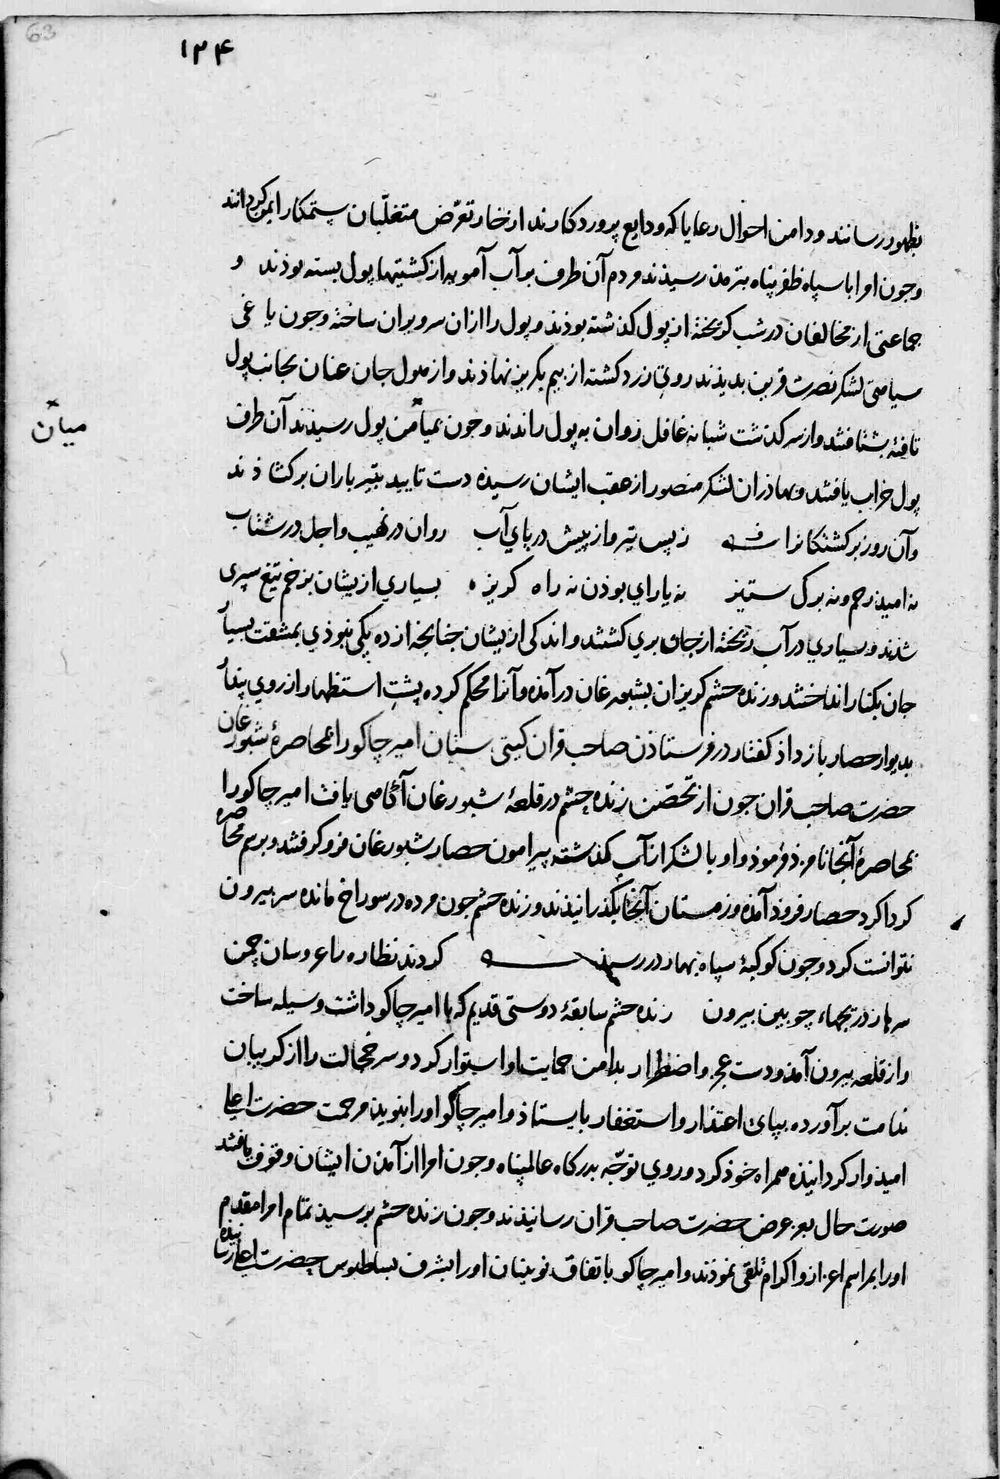 63
۱۲۴
بظهور رسانند و دامن احوال رعایا که ودایع پروردکارند از خار تعرّض متغلّبان ستمکار ایمن کردانند
وجون امرا با سپاه ظفر پناه بترمذ رسیذند مردم آن طرف بر آب آمویه از کشتیها پول بسته بوذند و
جماعتی از مخالفان در شب کریخته از پول کذشته بوذند و پول را ازان سر ویران ساخته وجون یاغی
سیاهی لشکر نصرت قرین بدیذند روی زرد کشته از بیم بکریز نهاذند و از هول جان عنان بجانب پول
تافته بشتافتند و از سر کذشت شبانه غافل روان به پول راندند وجون بمیامن پول رسیدند آن طرف
میان
پول خراب یافتند و بهاذران لشکر منصور از عقب ایشان رسیذه دست تایید بتیر باران برکشاذند
وآن روز برکشتکانرا ز پس تیر و از پیش دریای آب روان در نهیب و اجل در شتاب
نه امیذ رحم و نه برک ستیز نه یارای بوذن نه راه کریز ه بسیاری از یشان بزخم تیغ سپری
شدند و بسیاری در آب ریخته از جان بری کشتند و اندکی از یشان جنانجه از ده یکی نبوذی بمشقت بسیار
جان بکنار انداختند و زنده حشم کریزان بشبورغان در آمذه و آنرا محکم کرده پشت استظهار از روی پندار
بدیوار حصار باز داذ کفتار در فرستاذن صاحب قران کیتی ستان امیر جاکو را بمحاصرهٔ شبورغان
حضرت صاحب قران جون از تحصّن زنده چشم در قلعهٔ شبورغان آکاهی یافت امیر جاکو را
بمحاصرهٔ آنجا نامزد فرموذ و او با لشکر از آب کذشته پیرامون حصار شبورغان فرو کرفتند و برسم محاصره
کرداکرد حصار فروذ آمذه و زمستان آنجا بکذرانیذند و زنده حشم جون مرده در سوراخ مانده سر بیرون
نتوانست کرد وجون کوکبهٔ سپاه بهار در رسید کردند نظاره را عروسان چمن
سرها ز دریجهاء چوبین بیرون زنده حشم سابقهٔ دوستی قدیم که با امیر جاکو داشت وسیله ساخت
و از قلعه بیرون آمذ و دست عجز و اضطرار بدامن حمایت او استوار کرد و سر خجالت را از کریبان
ندامت برآورده بپای اعتذار و استغفار بایستاذ و امیر جاکو اورا بنوید مرحمت حضرت اعلی
امیذوار کردانیذه همراه خوذ کرد و روی توجّه بدرکاه عالمپناه وجون امرا از آمذن ایشان وقوف یافتند
صورت حال بعرض حضرت صاحب قران رسانیذند وجون زنده حشم برسیذ تمام امرا مقدم
اورا بمراسم اعزاز و اکرام تلقی نموذند و امیر جاکو باتفاق نوینان اورا بشرف بساطبوس حضرت اعلی رسانیذه